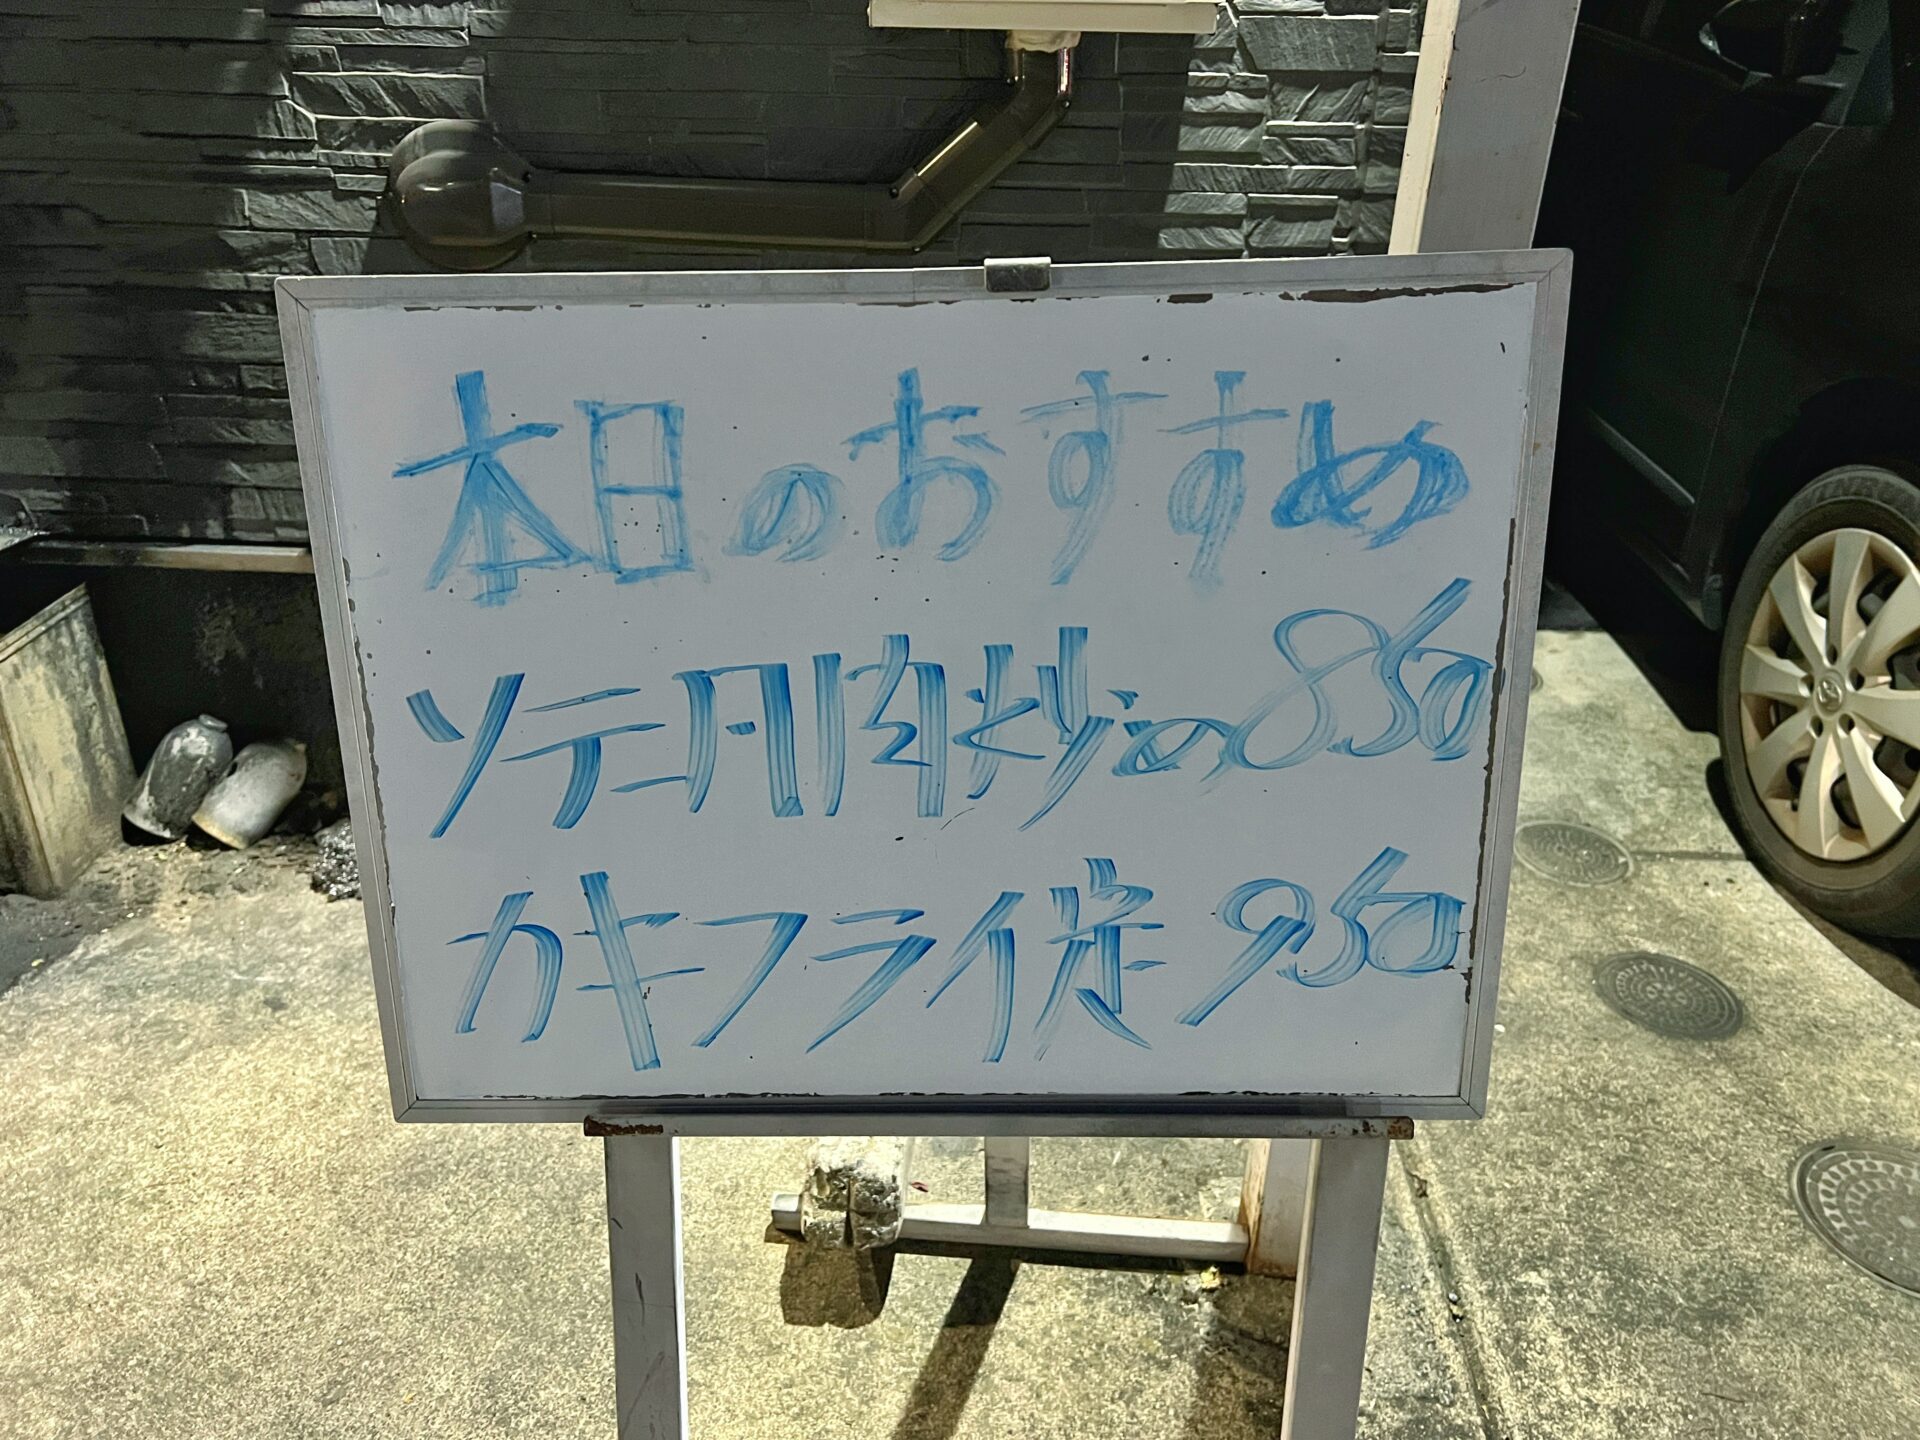 本日のおすすめ
肉炒め 850
カキフライ定 950